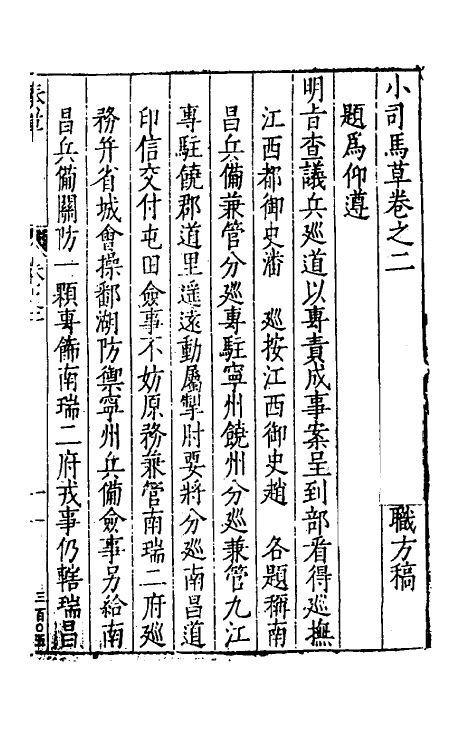 小司馬草卷之二
職方稿
題爲仰遵
明旨查議兵廵道以專責成事案呈到部看得廵撫
江西都御史潘　廵按江西御史趙　各題稱南
昌兵備兼管分廵專駐寧州饒州分廵兼管九江
專駐饒郡道里遥遠動屬掣肘要將分廵南昌道
印信交付屯田僉事不妨原務兼管南瑞二府廵
務并省城會操鄱湖防禦寧州兵備僉事另給南
昌兵備關防一顆專飭南瑞二府戎事仍轄瑞昌